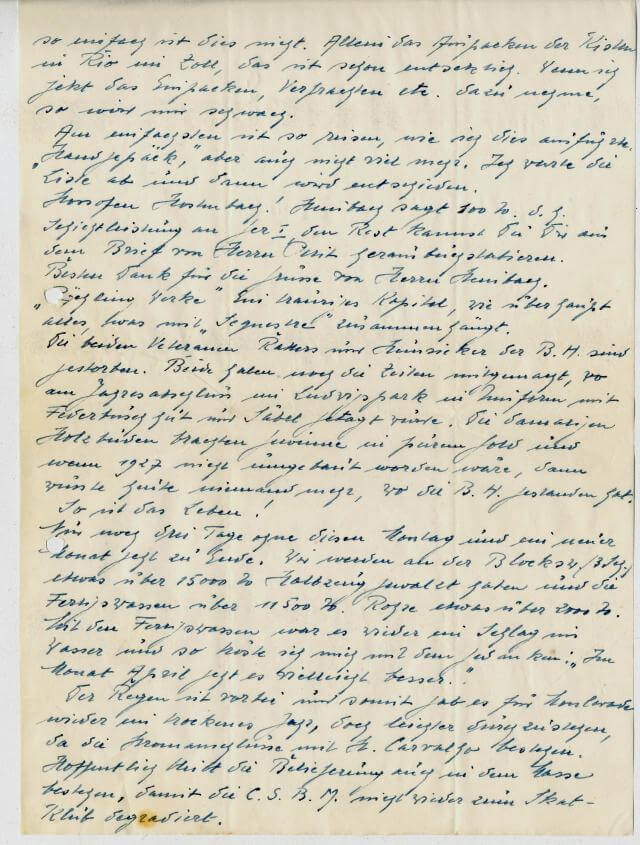 so einfach ist dies nicht. Allein das Auspacken der Kisten
in Rio im Zoll, das ist schon entsetzlich. Wenn ich
jetzt das Einpacken, Verfrachten etc. dazu nehme,
so wird mir schwach.
Am einfachsten ist so reisen, wie ich dies ausführte.
"Handgepäck", aber auch nicht viel mehr. Ich warte die
Liste ab und dann wird entschieden.
Hochofen! sagt 100 to. d. h.
den Rest kannst Du Dir aus
dem Brief von Herrn herausbuchstabieren.
Besten Dank für die Grüsse von Herrn
"Röchling Werke" Ein trauriges Kapitel, wie überhaupt
alles, was mit "Sequestre" zusammenhängt.
Die beiden Veteranen und der B. H. sind
gestorben. Beide haben noch die Zeiten mitgemacht, wo
am Jahresabschluss im Ludwigspark in Uniform mit
Federbuschhut und Säbel getagt wurde. Die damaligen
Holzbuden brachten Gewinne in purem Gold und
wenn 1927 nicht umgebaut worden wäre, dann
wüsste heute niemand mehr, wo die B. H. gestanden hat.
So ist das Leben!
Nur noch drei Tage ohne diesen Montag und ein neuer
Monat geht zu Ende. Wir werden an der Blockstr.
etwas über 15000 to Halbzeug gewalzt haben und die
Fertigstrassen über 11500 to. Rohre etwas über 2000 to.
Mit den Fertigstrassen war es wieder ein Schlag ins
Wasser und so tröste ich mich mit dem Gedanken: "Im
Monat April geht es vielleicht besser."
Der Regen ist vorbei und somit gab es für Monlevade
wieder ein trockenes Jahr, doch leichter durchzustehen,
da die Stromanschlüsse mit H. Carvalho bestehen.
Hoffentlich bleibt die Belieferung auch in dem Masse
bestehen, damit die C. S. B. M. nicht wieder zum Skat-
Klub degradiert.